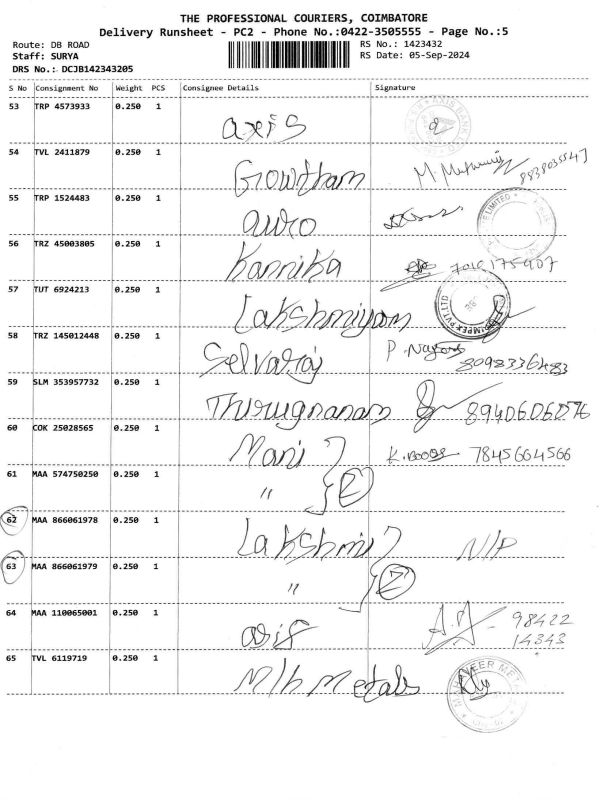 THE PROFESSIONAL COURIERS, COIMBATORE
Delivery Runsheet - PC2 - Phone No.:0422-3505555 - Page No.:5
Route: DB ROAD RS No.: 1423432
Staff: SURYA RS Date: 05-Sep-2024
DRS No.: DCJB142343205
S No Consignment No Weight PCS Consignee Details Signature
53 TRP 4573933 0.250 1 axis
54 TVL 2411879 0.250 1 Growtham
55 TRP 1524483 0.250 1 auro
56 TRZ 45003805 0.250 1 Kannika
57 TUT 6924213 0.250 1 Lakshmiyam
58 TRZ 145012448 0.250 1 Selvaraj
59 SLM 353957732 0.250 1 Thirugnanam 8940606076
60 COK 25028565 0.250 1 Mani 7845664566
61 MAA 574750250 0.250 1 " 2
62 MAA 866061978 0.250 1 Lakshmi N/P
63 MAA 866061979 0.250 1 " 2
64 MAA 110065001 0.250 1 asif 98422
14343
65 TVL 6119719 0.250 1 M/h Metals